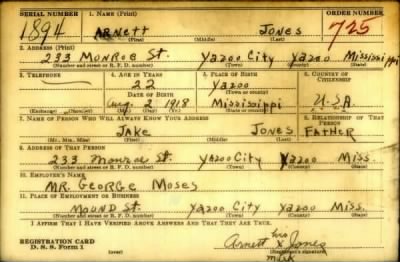 SERIAL NUMBER 1. NAME (Print) ORDER NUMBER
1894 ARNETT JONES 725
(First) (Middle) (Last)
2. ADDRESS (Print)
233 MONROE St. Yazoo City Yazoo Mississippi
(Number and street or R. F. D. number) (Town) (County) (State)
3. TELEPHONE 4. AGE IN YEARS 5. PLACE OF BIRTH 6. COUNTRY OF CITIZENSHIP
22 Yazoo
(Town or county)
DATE OF BIRTH
Aug. 2 1918 Mississippi U.S.A.
(Exchange) (Number) (Mo.) (Day) (Yr.) (State or country)
7. NAME OF PERSON WHO WILL ALWAYS KNOW YOUR ADDRESS 8. RELATIONSHIP OF THAT PERSON
JAKE JONES FATHER
(Mr., Mrs., Miss) (First) (Middle) (Last)
9. ADDRESS OF THAT PERSON
233 Monroe St. Yazoo City Yazoo Miss.
(Number and street or R. F. D. number) (Town) (County) (State)
10. EMPLOYER'S NAME
MR. GEORGE MOSES
11. PLACE OF EMPLOYMENT OR BUSINESS
MOUND St. Yazoo City Yazoo Miss.
(Number and street or R. F. D. number) (Town) (County) (State)
I AFFIRM THAT I HAVE VERIFIED ABOVE ANSWERS AND THAT THEY ARE TRUE.
REGISTRATION CARD
D. S. S. Form 1 (over)
his
Arnett X Jones
(Registrant's signature)
mark